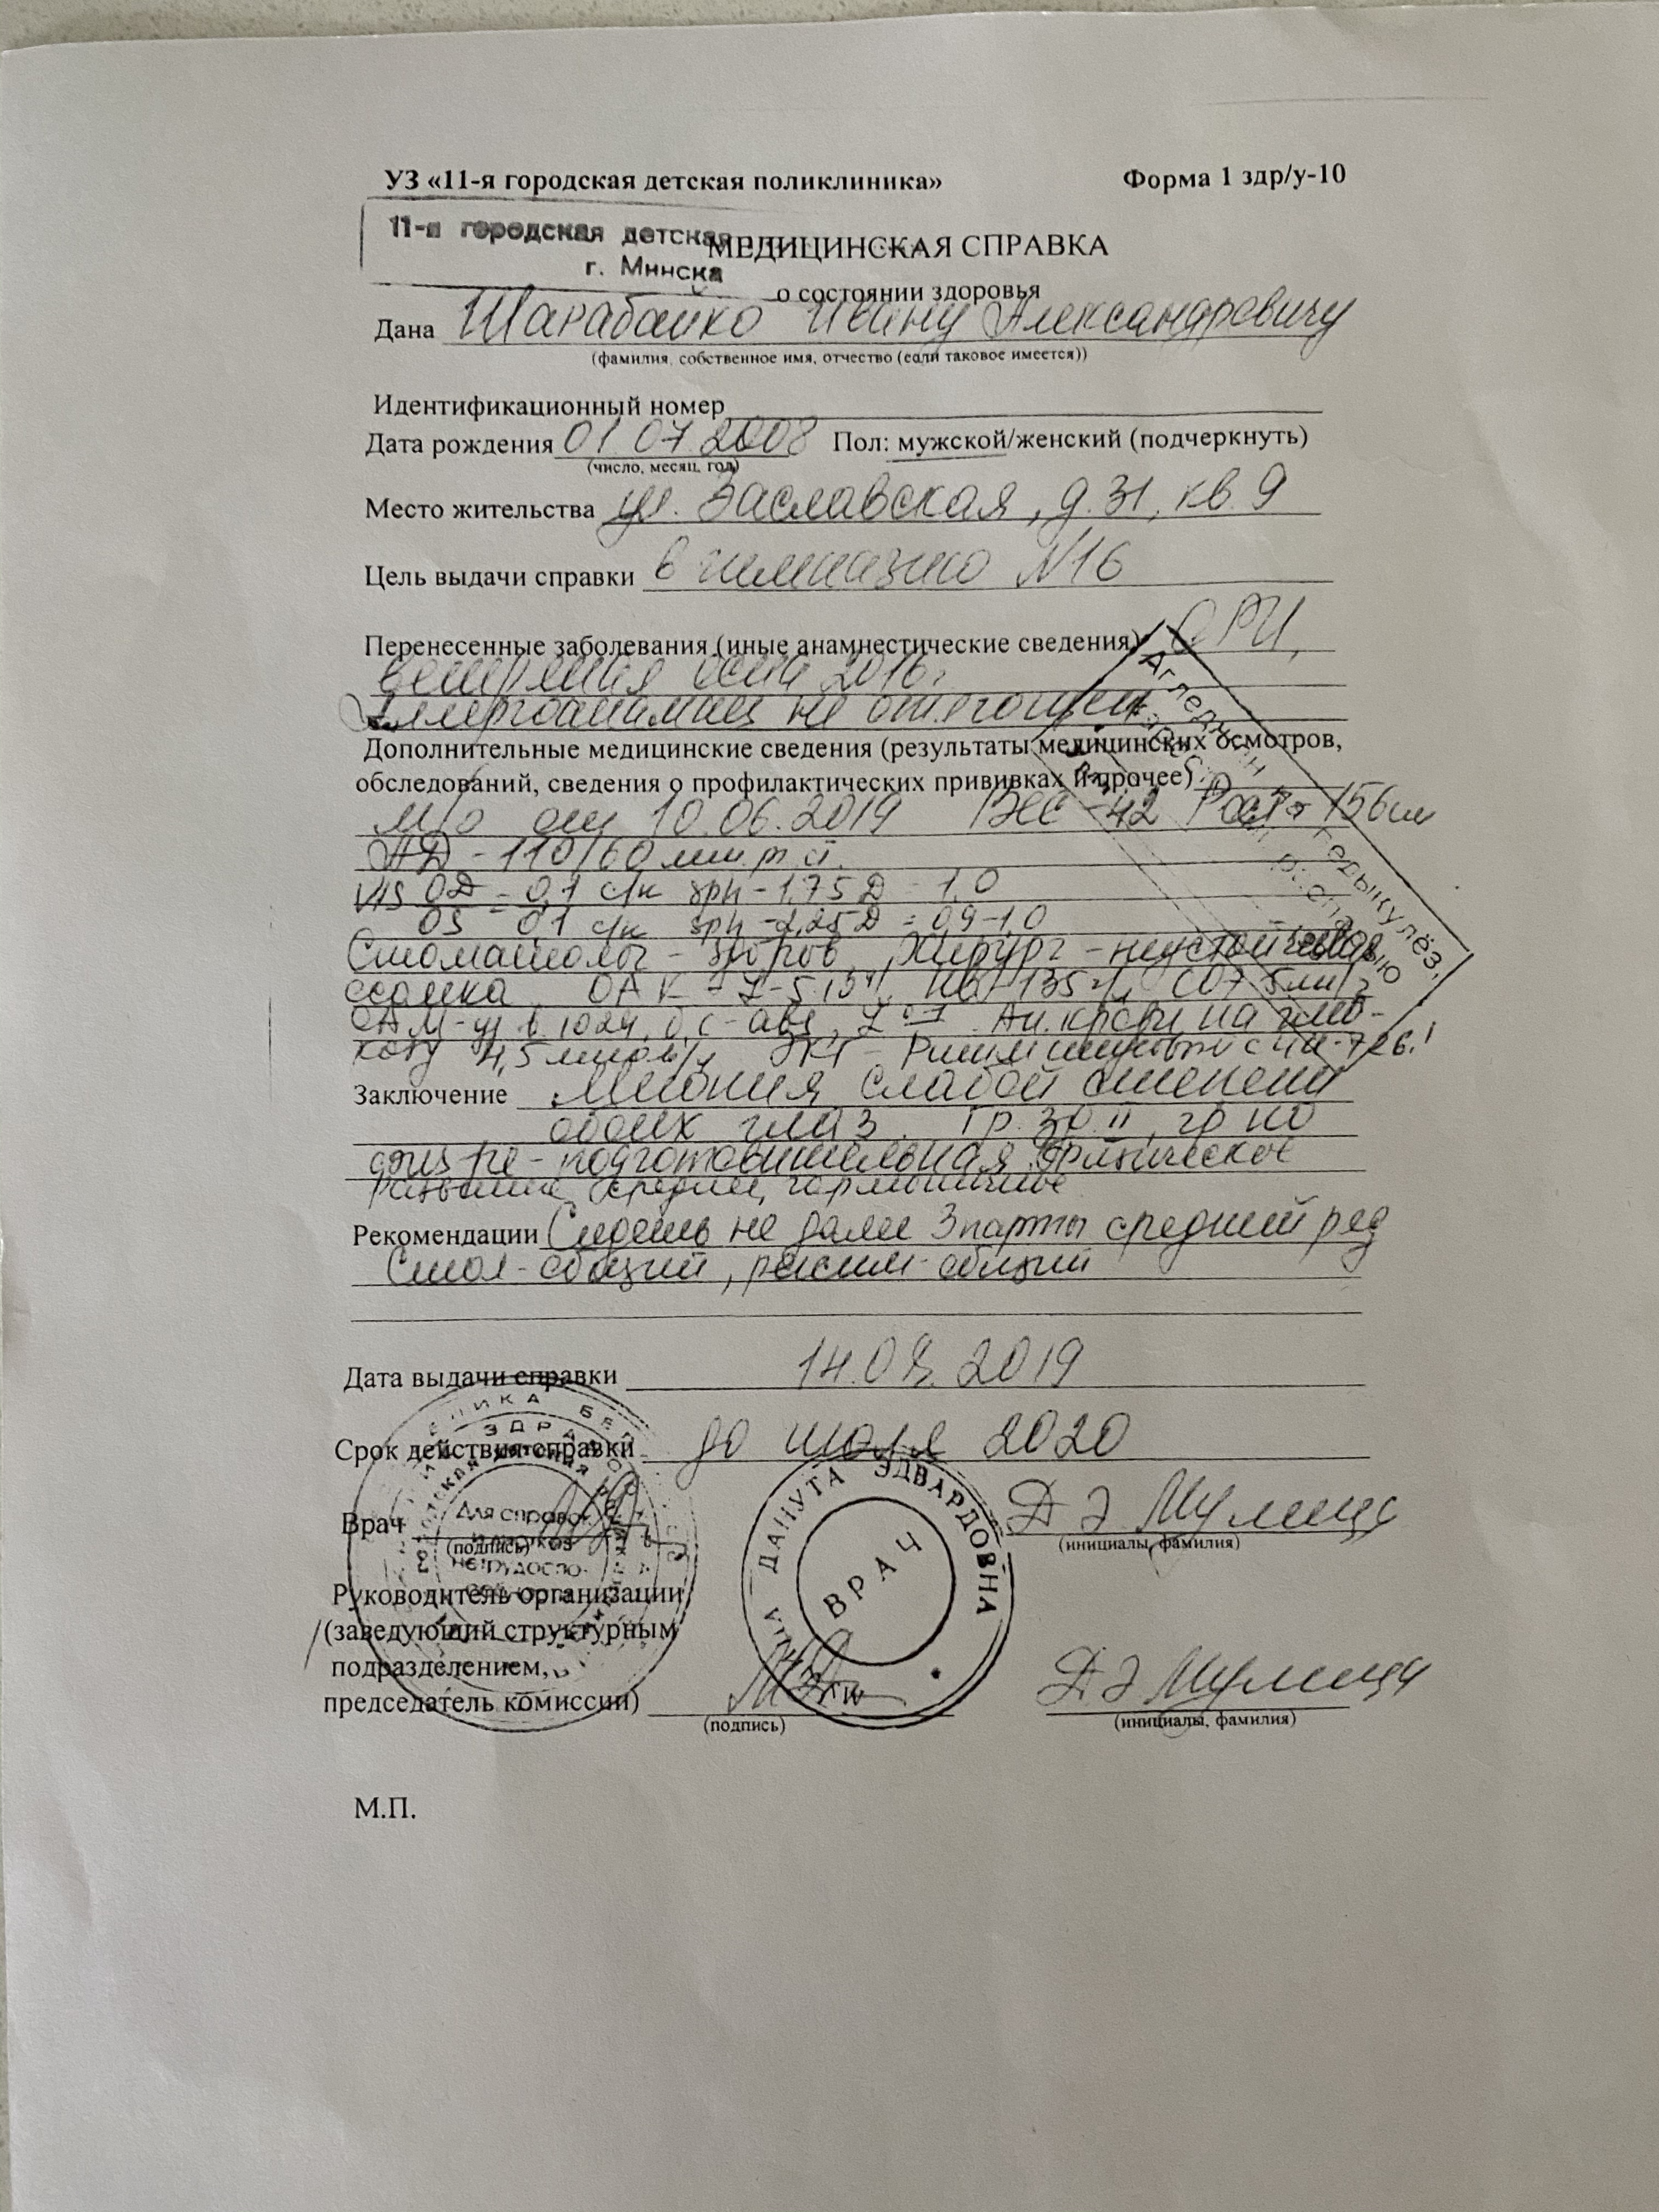 УЗ «11-я городская детская поликлиника» Форма 1 здр/у-10
11-я городская детская
г. Минска
МЕДИЦИНСКАЯ СПРАВКА
о состоянии здоровья
Дана Шарабайко Ивану Александровичу
(фамилия, собственное имя, отчество (если таковое имеется))
Идентификационный номер
Дата рождения 01.07.2008 Пол: мужской/женский (подчеркнуть)
(число, месяц, год)
Место жительства ул. Заславская, д.31, кв.9
Цель выдачи справки в гимназию N16
Перенесенные заболевания (иные анамнестические сведения) ОРИ,
2016г.
Аллергоанамнез не отягощен
Дополнительные медицинские сведения (результаты медицинских осмотров,
обследований, сведения о профилактических прививках и прочее)
М/о от 10.06.2019 Вес - 42 Рост - 156 см
АД - 110/60 мм.р.ст.
Vis OD = 0,1 с/к sph - 1,75 D = 1.0
OS 0,1 с/к sph -2,25D = 0,9-1,0
Стоматолог - здоров, Хирург - неустойчивая
осанка. ОАК
ОАМ - Ан. крови на глю-
козу 4,5 ммоль/л ЭКГ - Ритм
Заключение Миопия слабой степени
обоих глаз. Гр. зд. II, гр по
физ.ре - подготовительная. Физическое
развитие среднее, гармоничное
Рекомендации Сидеть не далее 3 парты средний ряд
Стол - общий, режим - общий
Дата выдачи справки 14.08.2019
Срок действия справки до июля 2020
Врач Д Э Мулица
(подпись) (инициалы, фамилия)
Для справок
ДАНУТА ЭДВАРДОВНА
ВРАЧ
Руководитель организации
(заведующий структурным
подразделением,
председатель комиссии) Д Э Мулица
(подпись) (инициалы, фамилия)
М.П.